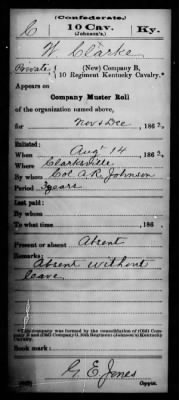 (Confederate.)
C 10 Cav. Ky.
(Johnson's.)
W Clarke
Private, (New) Company B,
10 Regiment Kentucky Cavalry.*
Appears on
Company Muster Roll
of the organization named above,
for Nov & Dec, 1862.
Enlisted:
When Aug 14, 1862.
Where Clarksville
By whom Col A.R. Johnson
Period 3 years
Last paid:
By whom
To what time, 186
Present or absent Absent
Remarks:
Absent without
leave
*This company was formed by the consolidation of (Old) Company
Kentucky Cavalry.
Book mark:
G. E. Jones
Copyist.